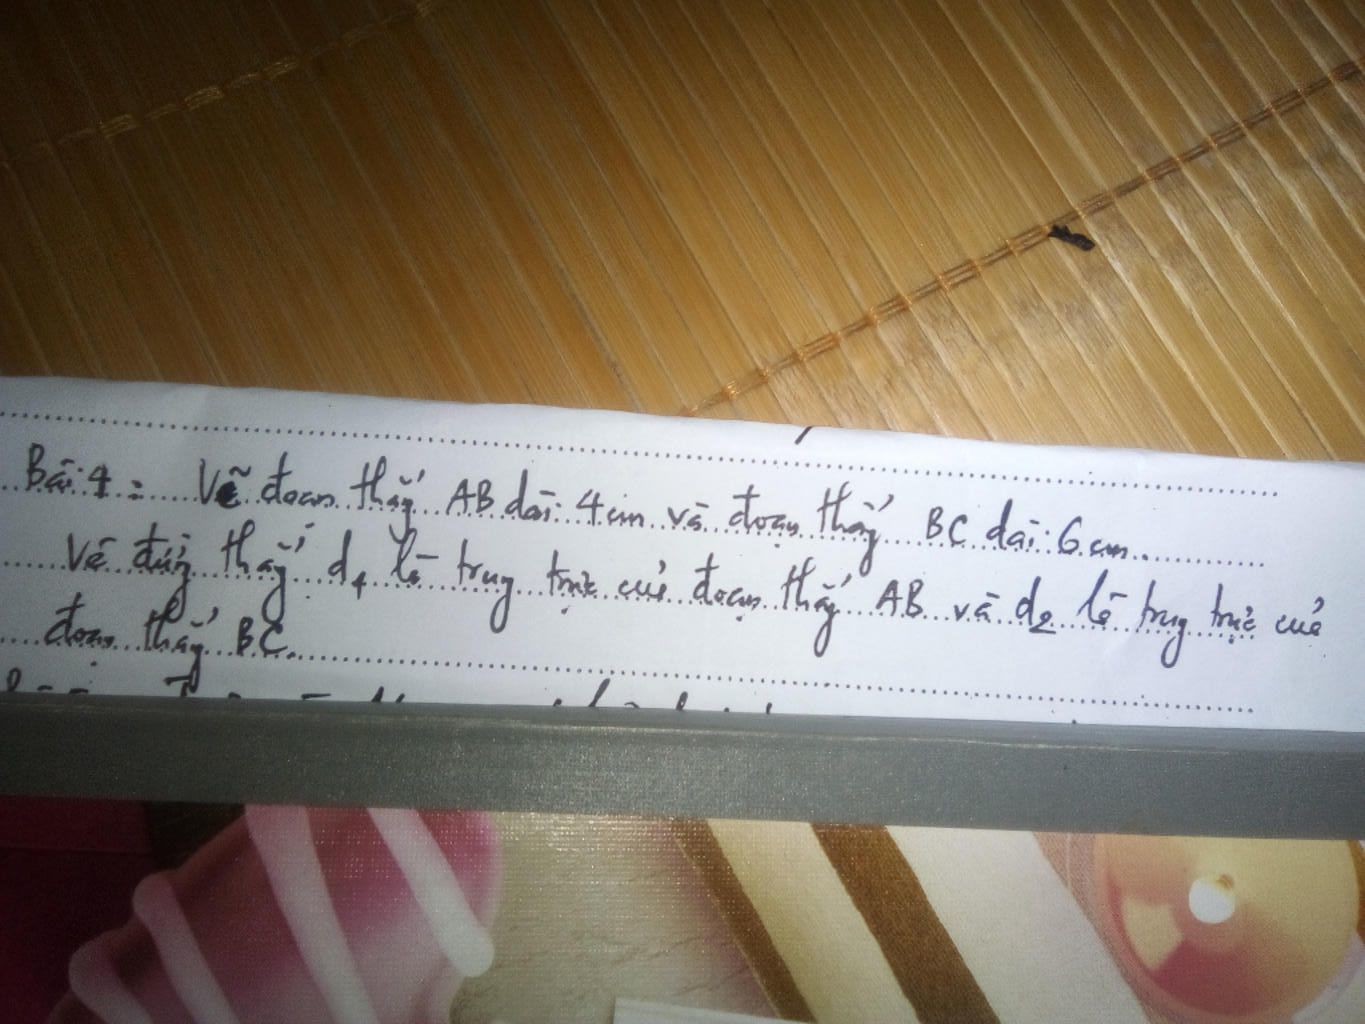 Bài 4: Vẽ đoạn thẳng AB dài 4cm và đoạn thẳng BC dài 6cm.
Vẽ đường thẳng d1 là trung trực của đoạn thẳng AB và d2 là trung trực của
đoạn thẳng BC.